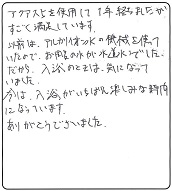 アクアスЪを使用して1年経ちましたが
すごく満足しています。
以前は、アルカリイオンKの機械を使っ
ていたので、お風呂の水が水道水でした。
だから、入浴のときは、気になって
いました。
今は、入浴がいちばん楽しみな時間
になっています。
ありがとうございました。